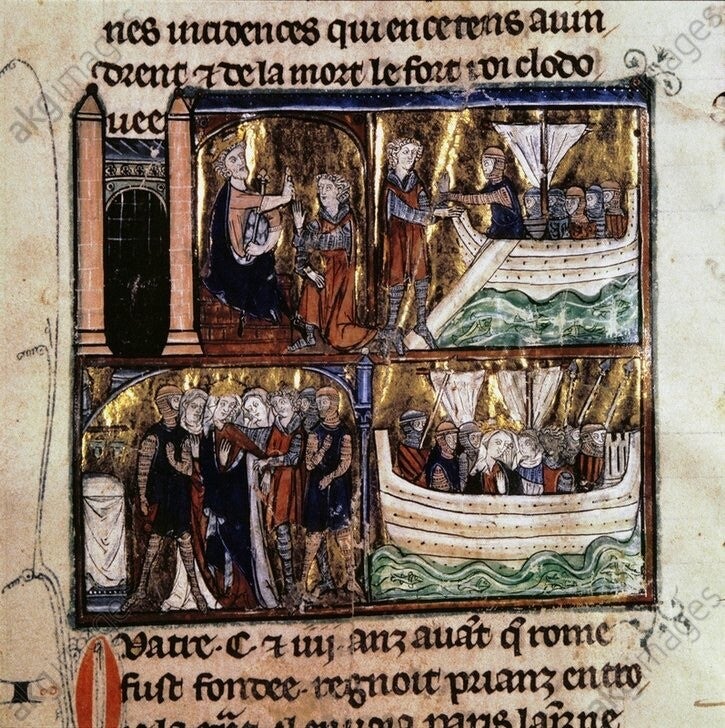 nes incidences qui en ce tens auin
drent ⁊ de la mort le fort roi clodo
uees
Vatre .C. ⁊ iiij. anz auāt q̄ rome
fust fondee. regnoit prianz en tro
ie la
paris
akg-images
akg-images
akg-images
akg-images
akg-images